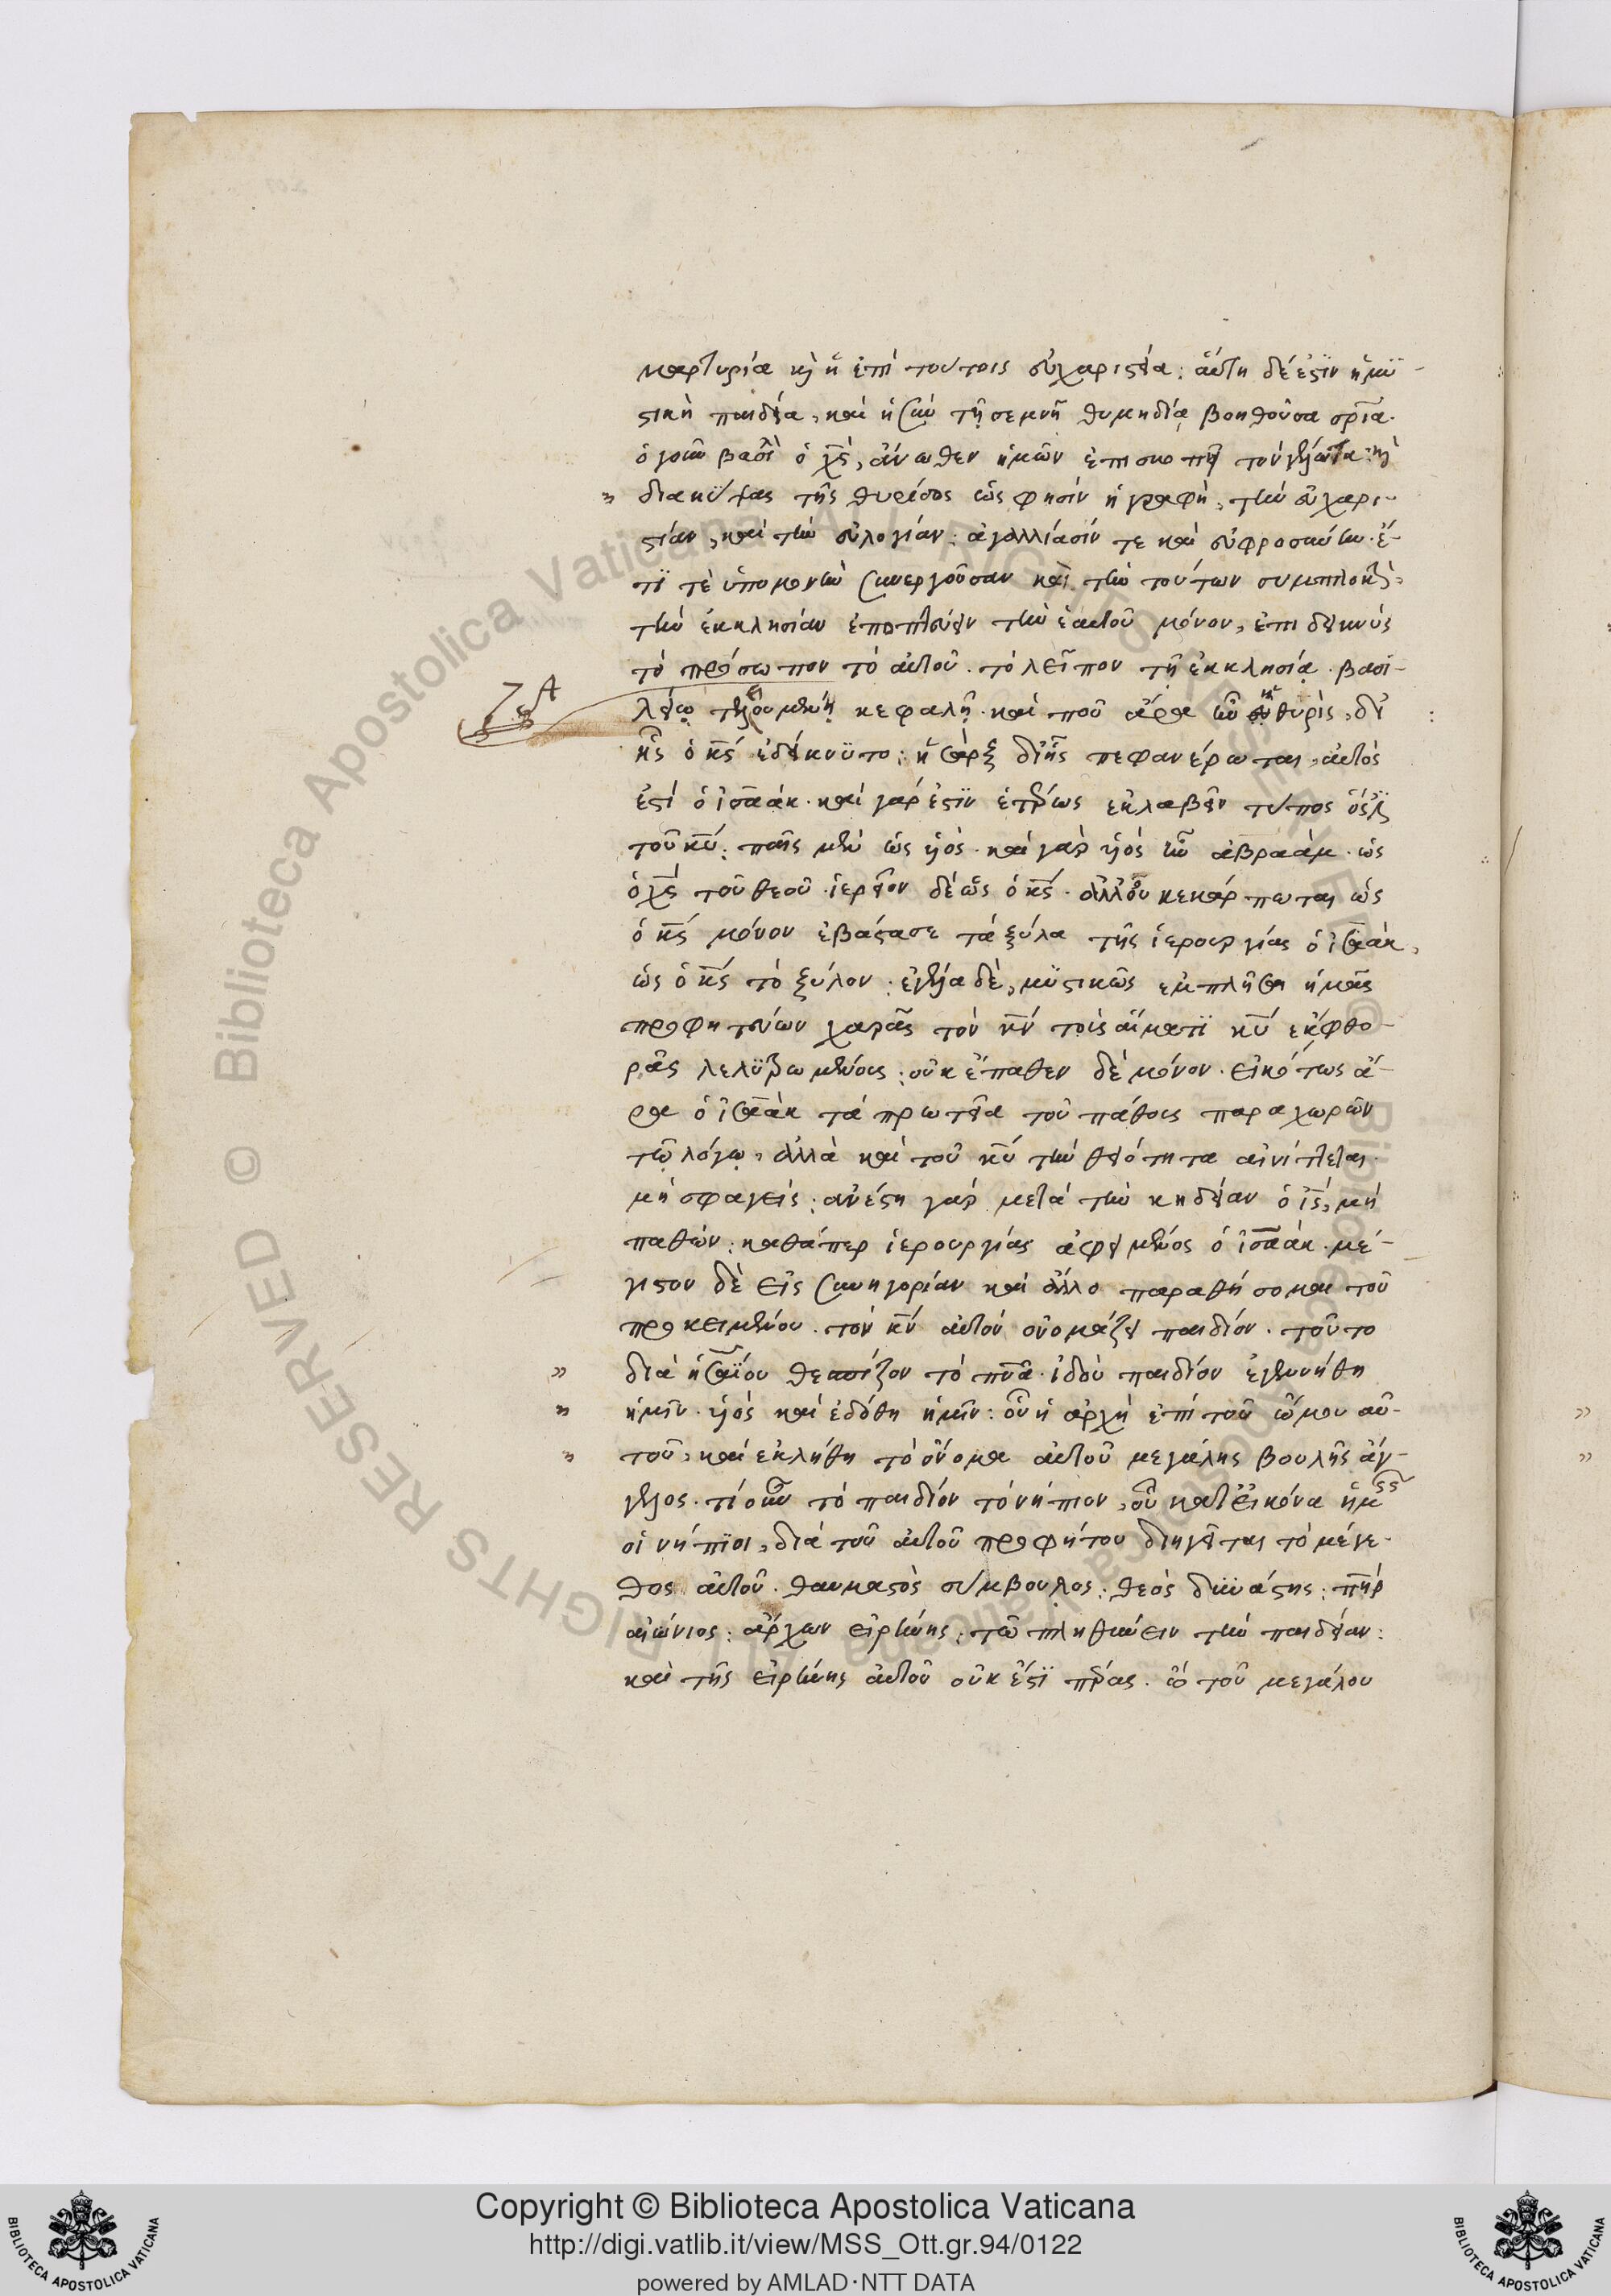 μαρτυρία κὶ ἡ ἐπὶ τούτοις εὐχαριστεία: αὕτη δέ ἐστϊν ἡ μϋ-
στικὴ παιδεία, καὶ ἡ σὺν τῇ σεμνῇ θυμηδίᾳ βοηθοῦσα σρ̅ία.
ὁ γοῦν βασι ὁ χ̅ς, ἄνωθεν ἡμῶν ἐπισκοπεῖ τὸν γέλωτα: κὶ
διακϋψας τῆς θυρίδος ὥς φησὶν ἡ γραφὴ, τὴν εὐχαρι-
στίαν, καὶ τὴν εὐλογίαν: ἀγαλλίασίν τε καὶ εὐφροσύνην. ἔ-
τϊ τὲ ὑπομονὴν συνεργοῦσαν καὶ τὴν τούτων συμπλοκὴν,
τὴν ἐκκλησίαν ἐποπτεύειν τὴν ἑαυτοῦ μόνον, ἐπιδεικνὺς
τὸ πρόσωπον τὸ αὐτοῦ. τὸ λεῖπον τῇ ἐκκλησίᾳ. βασι-
λείῳ τελειουμένῃ κεφαλῇ. καὶ ποῦ ἄρα ἦν ἡ θυρὶς, δι'
ἧς ὁ κ̅ς ἐδείκνϋτο: ἡ σὰρξ δι' ἧς πεφανέρωται, αὐτὸς
ἐστί ὁ ἰσαάκ. καὶ γάρ ἐστϊν ἑτέρως ἐκλαβεῖν τύπος ὅς ἐστϊ
τοῦ κ̅υ: παῖς μὲν ὡς υἱός. καὶ γὰρ υἱὸς ἦν ἀβραάμ. ὡς
ὁ χ̅ς τοῦ θεοῦ. ἱερεῖον δέ ὡς ὁ κ̅ς. ἀλλ' οὐ κεκάρπωται ὡς
ὁ κ̅ς μόνον ἐβάστασε τὰ ξύλα τῆς ἱερουργίας ὁ ἰσαάκ,
ὡς ὁ κ̅ς τὸ ξύλον. ἐγέλα δὲ, μϋστικῶς ἐμπλῆσαι ἡμᾶς
προφητεύων χαρᾶς τὸν κ̅ν τοὺς αἵματϊ κ̅υ ἐκ φθο-
ρᾶς λελϋτρωμένους: οὐκ ἔπαθεν δὲ μόνον. εἰκότως ἄ-
ρα ὁ ἰσαὰκ τὰ πρωτεῖα τοῦ πάθους παραχωρῶν
τῷ λόγῳ, ἀλλὰ καὶ τοῦ κ̅υ τὴν θειότητα αἰνίττεται.
μὴ σφαγείς: ἀνέστη γάρ μετὰ τὴν κηδείαν ὁ ι̅ς, μὴ
παθών: καθάπερ ἱερουργίας ἀφειμένος ὁ ἰσαάκ. μέ-
γιστον δὲ εἰς συνηγορίαν καὶ ἄλλο παραθήσομαι τοῦ
προκειμένου. τὸν κ̅ν αὐτὸν ὀνομάζει παιδίον. τοῦτο
διὰ ἡσαΐου θεσπίζον τὸ πν̅α. ἰδοὺ παιδίον ἐγεννήθη
ἡμῖν. υἱὸς καὶ ἐδόθη ἡμῖν: οὗ ἡ ἀρχὴ ἐπὶ τοῦ ὤμου αὐ-
τοῦ, καὶ ἐκλήθη τὸ ὄνομα αὐτοῦ μεγάλης βουλῆς ἄγ-
γελος. τί οὖν τὸ παιδίον τὸ νήπιον, οὗ κατ' εἰκόνα ἡμεῖς
οἱ νήπϊοι, διὰ τοῦ αὐτοῦ προφήτου διηγεῖται τὸ μέγε-
θος αὐτοῦ. θαυμαστὸς σύμβουλος: θεὸς δϋνάστης: π̅ηρ
αἰώνιος: ἄρχων εἰρήνης: τῷ πληθύνειν τὴν παιδείαν:
καὶ τῆς εἰρήνης αὐτοῦ οὐκ ἔστϊ πέρας. ὢ τοῦ μεγάλου
Copyright © Biblioteca Apostolica Vaticana
http://digi.vatlib.it/view/MSS_Ott.gr.94/0122
powered by AMLAD·NTT DATA